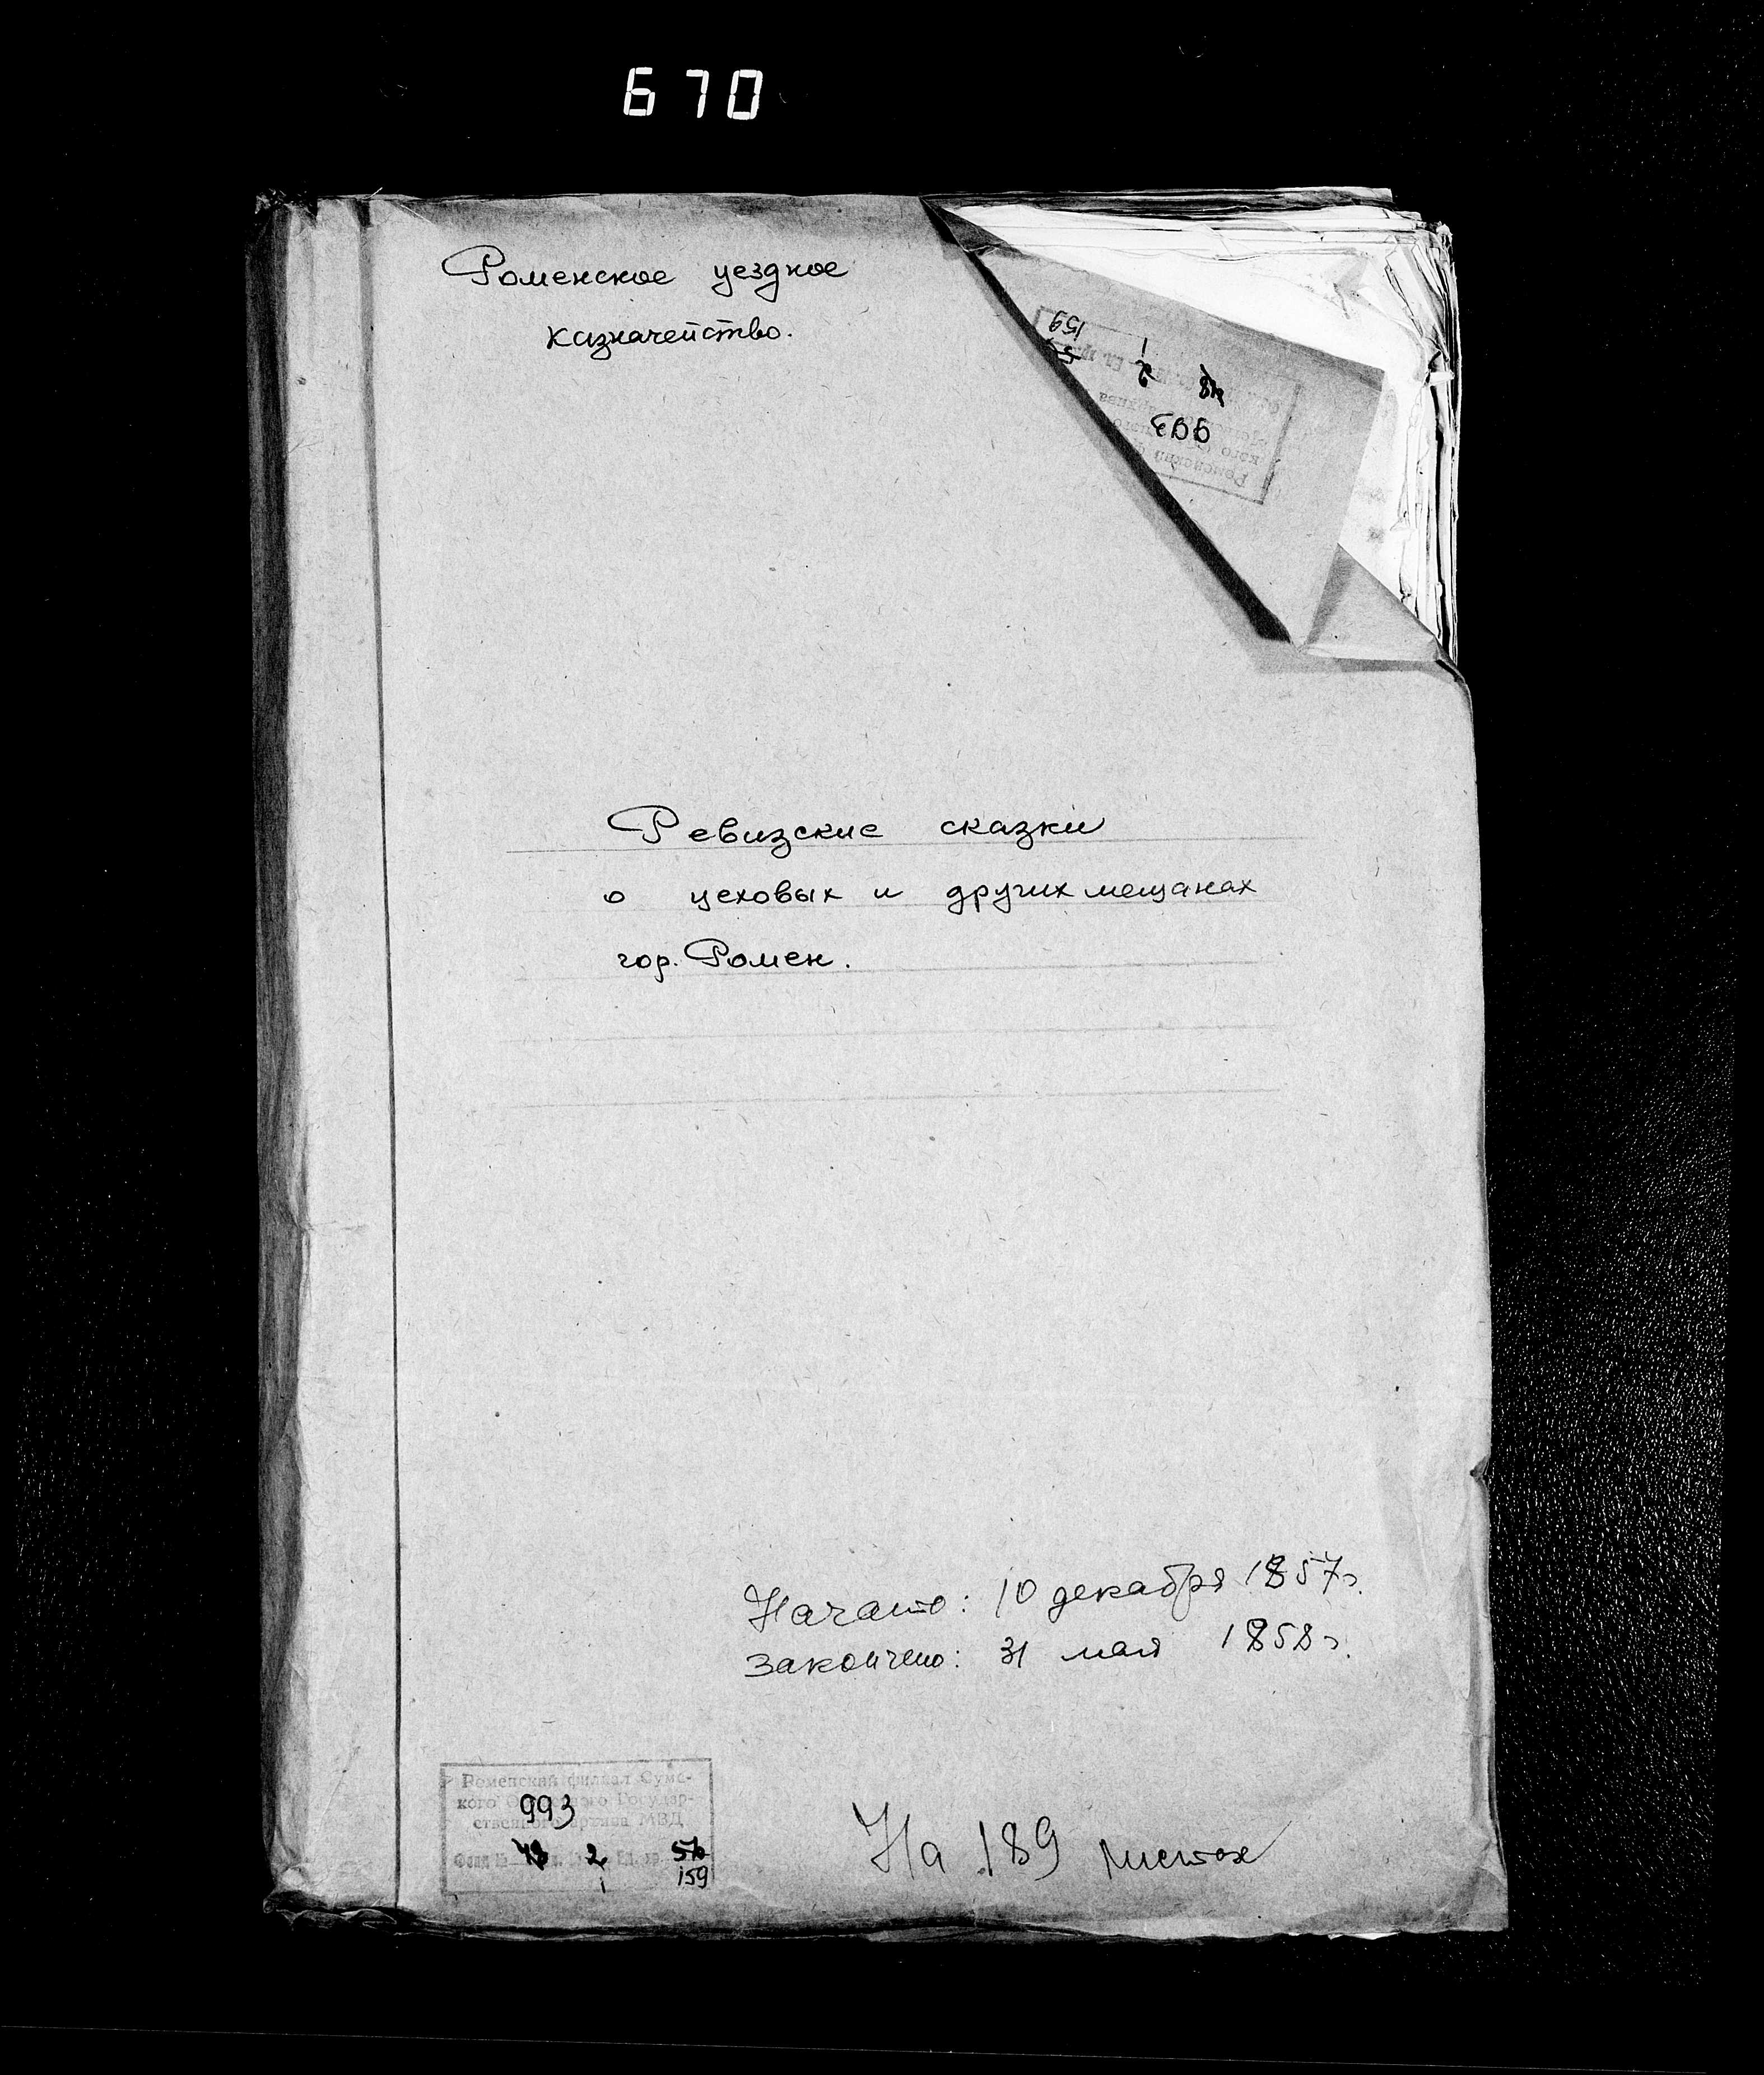 670
Роменское уездное
казначейство.
159
1
2
993
Ревизские сказки
о цеховых и других мещанах
гор. Ромен.
Начато: 10 декабря 1857 г.
Закончено: 31 мая 1858 г.
Роменский филиал Сумс-
кого Государ-
ственного архива МВД
993
Фонд № 48 2
1 159
На 189 листах